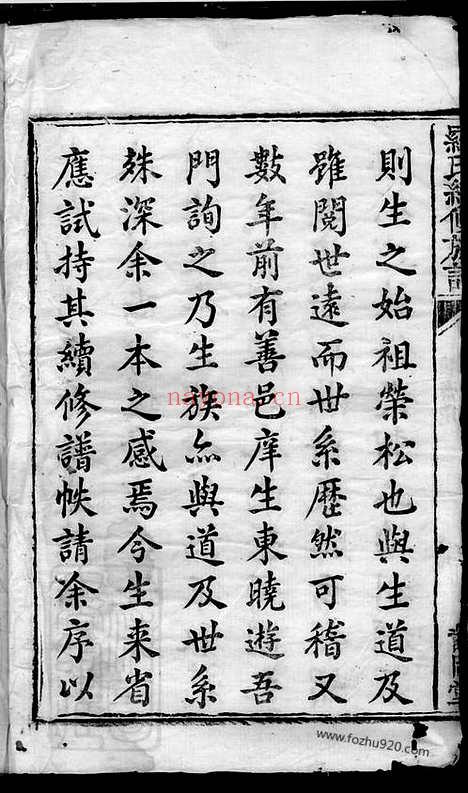 羅氏續修族譜
則生之始祖榮松也與生道及
雖閱世遠而世系歷然可稽又
數年前有善邑庠生東曉遊吾
門詢之乃生族亦與道及世系
殊深余一本之感焉今生来省
應試持其續修譜帙請余序以
nayona.cn
www.fozhu920.com